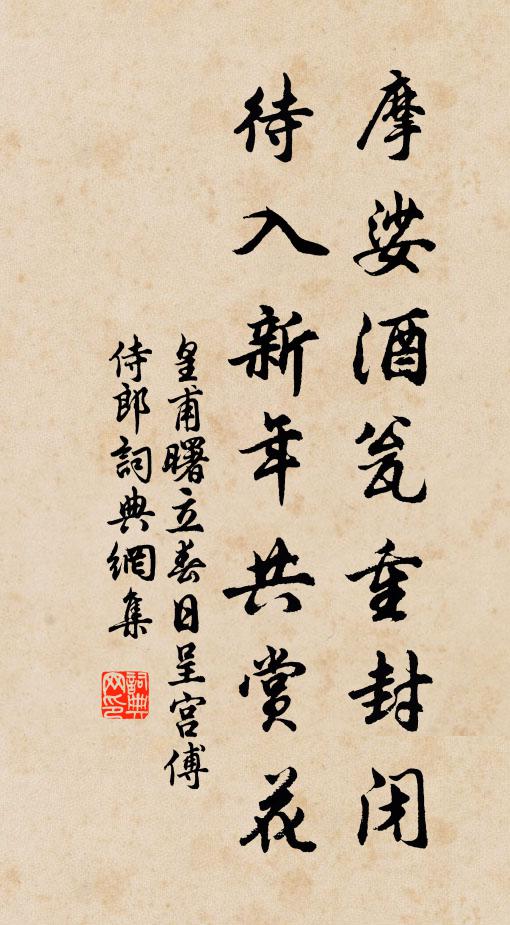 摩娑酒瓮重封闭
待入新年共賞花
皇甫曙立春日呈宫傅
侍郎詞典網集
詞典网印